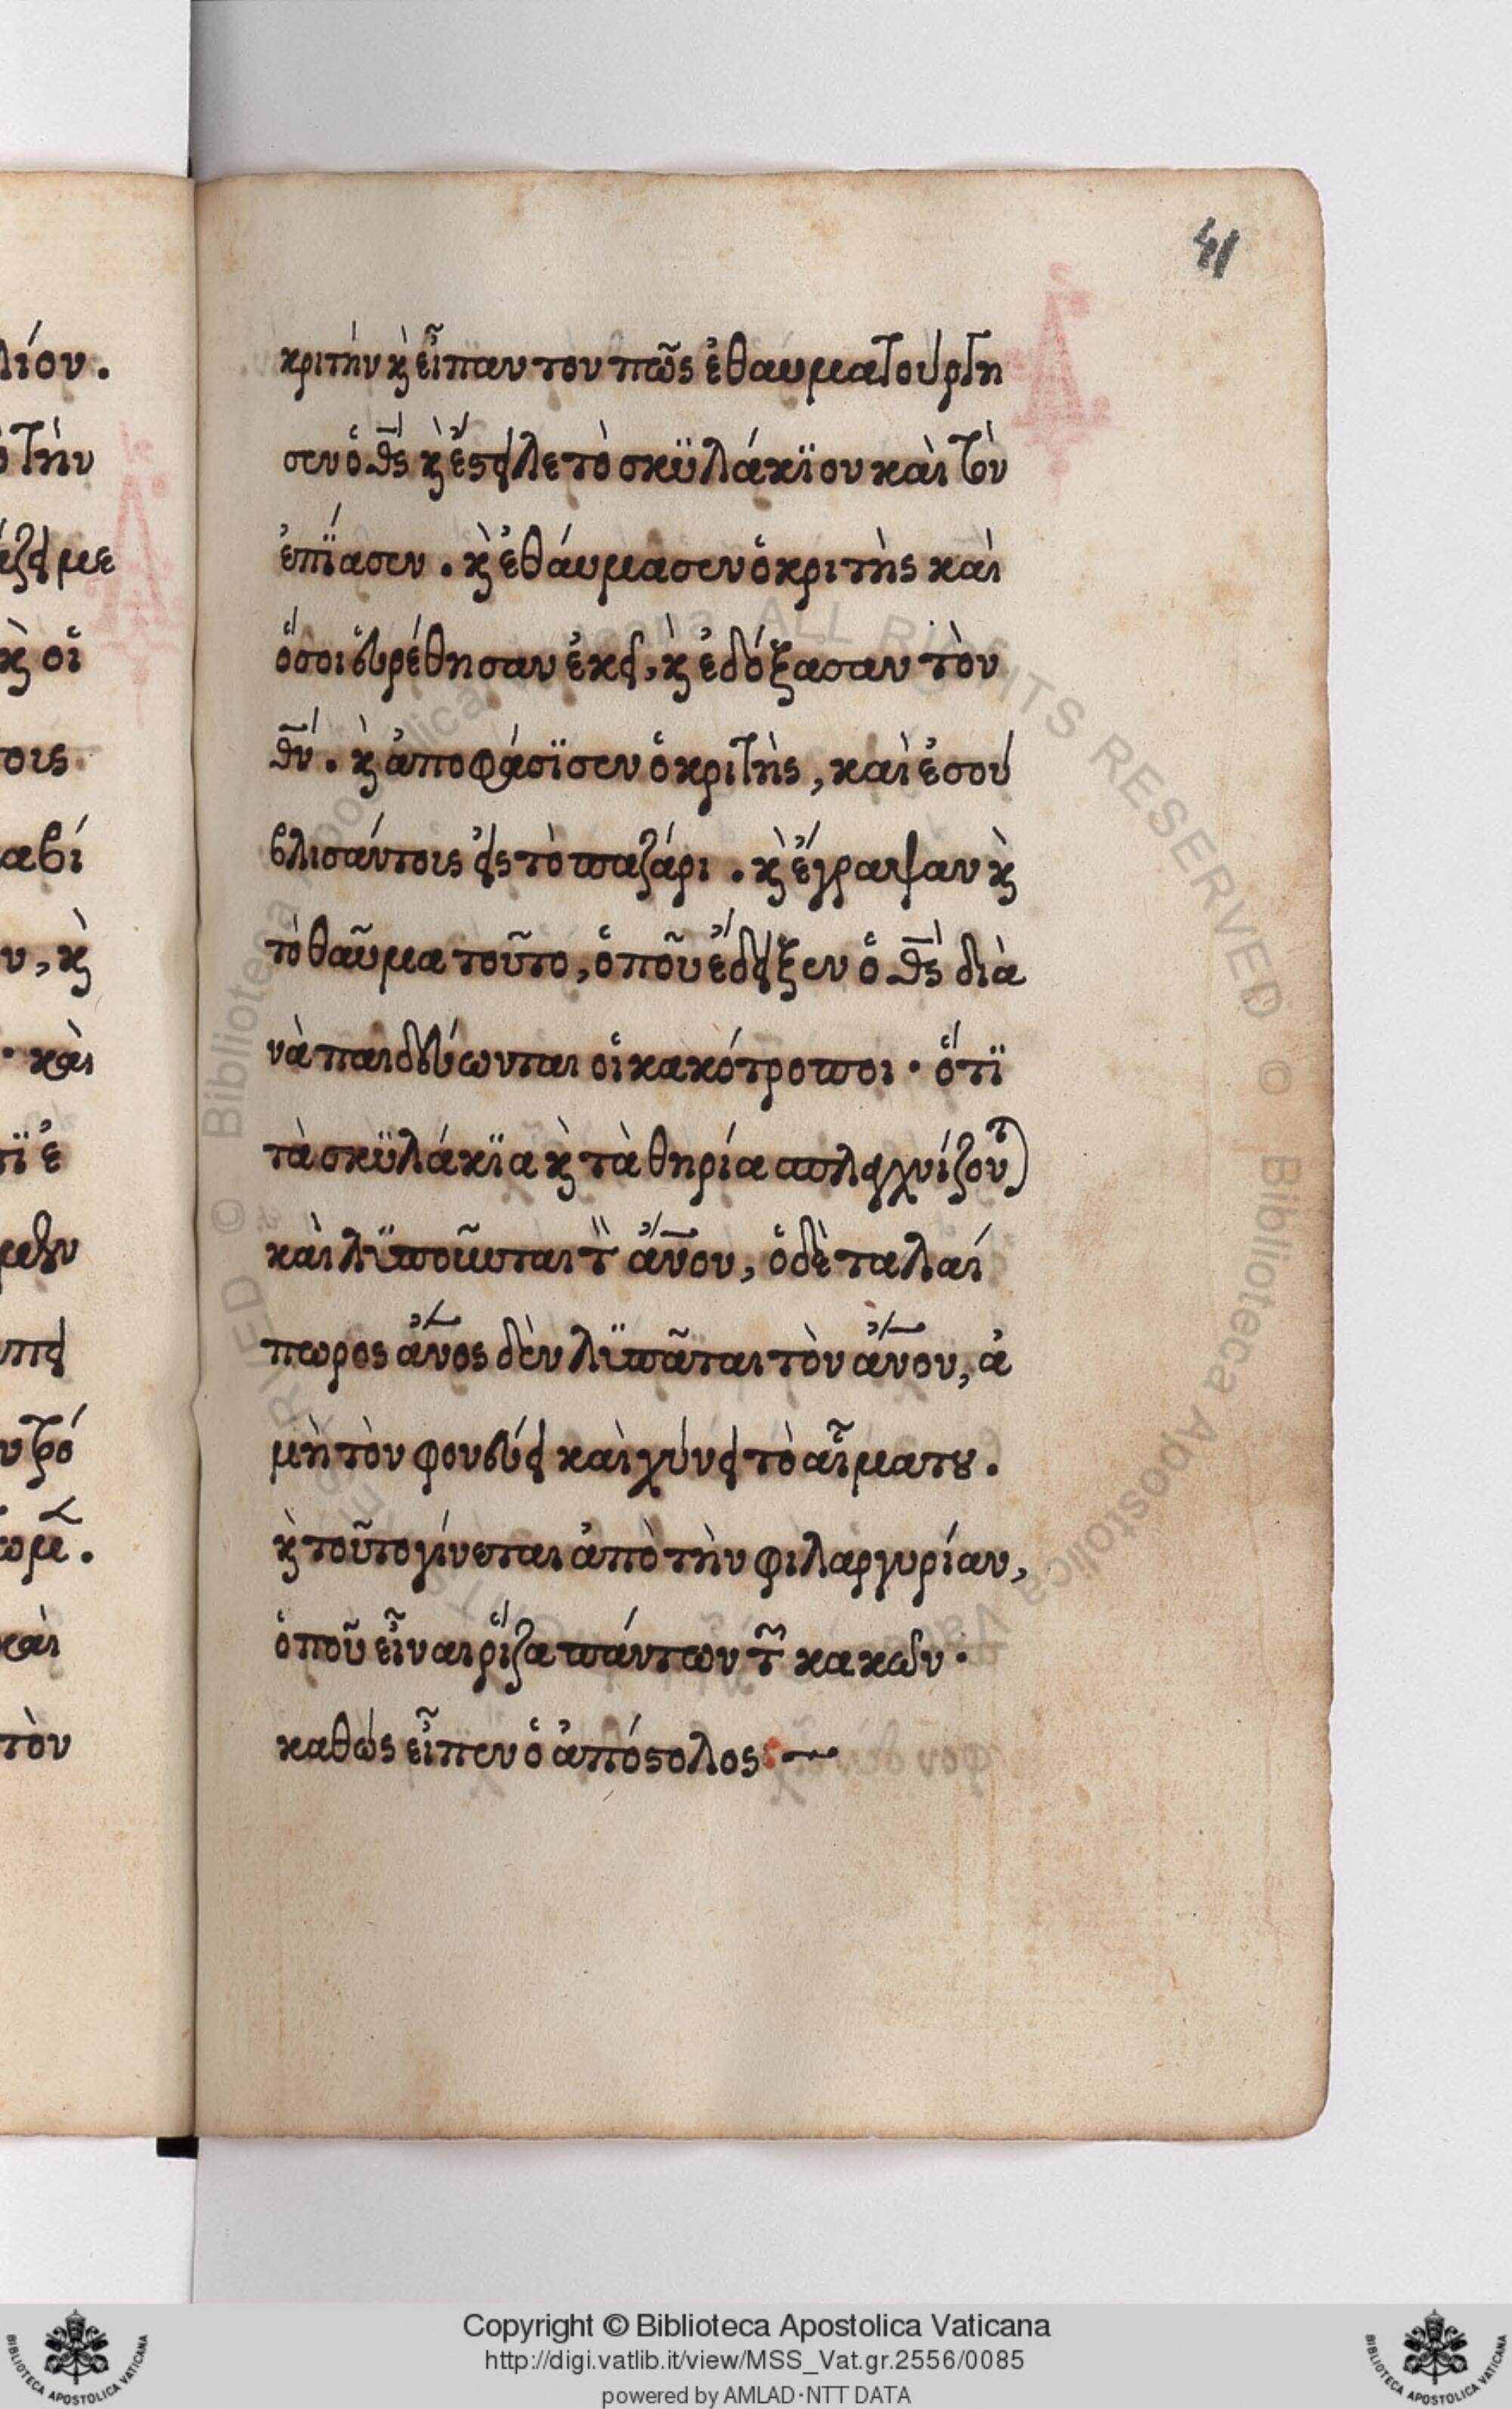 41
κριτήν κ̀ εἶπαν του πῶς ἐθαυματούργη
σεν ὁ θ̅ς̀ κ̀ ἔςειλε τὸ σκϋλάκϊον καὶ τὸν
ἐπΐασεν . κ̀ ἐθάυμασεν ὁ κριτὴς καὶ
ὅσοι εὑρέθησαν ἐκεῖ, κ̀ ἐδόξασαν τὸν
θ̅ν́ . κ̀ ἀποφάσϊσεν ὁ κριτὴς, καὶ ἐσού
βλισάν τοις εἰς τὸ παζάρι . κ̀ ἔγραψαν κ̀
τὸ θαῦμα τοῦτο, ὁποῦ ἔδειξεν ὁ θ̅ς̀ διὰ
νὰ παιδεύωνται οἱ κακότροποι · ὅτϊ
τὰ σκϋλάκϊα κ̀ τὰ θηρία σπλαχνίζουντ)
καὶ λϋποῦνται τ̏ ἄν̅ου, ὁ δὲ ταλαί
πωρος ἄν̅ος δὲν λϋπᾶται τὸν ἄν̅ον, ἀ
μὴ τὸν φονεύει καὶ χύνει τὸ αἷμα τȣ .
κ̀ τοῦτο γίνεται ἀπὸ τὴν φιλαργυρίαν,
ὁποῦ εἶναι ῥίζα πάντων τ̃ κακῶν ·
καθὼς εἶπεν ὁ ἀπόςολος : ~
λίον .
οτὴν
με
κ̀ οἱ
τοις
αβί
ν, κ̀
· καὶ
τϊ ἐ
καὶ
τὸν
Copyright © Biblioteca Apostolica Vaticana
http://digi.vatlib.it/view/MSS_Vat.gr.2556/0085
powered by AMLAD·NTT DATA